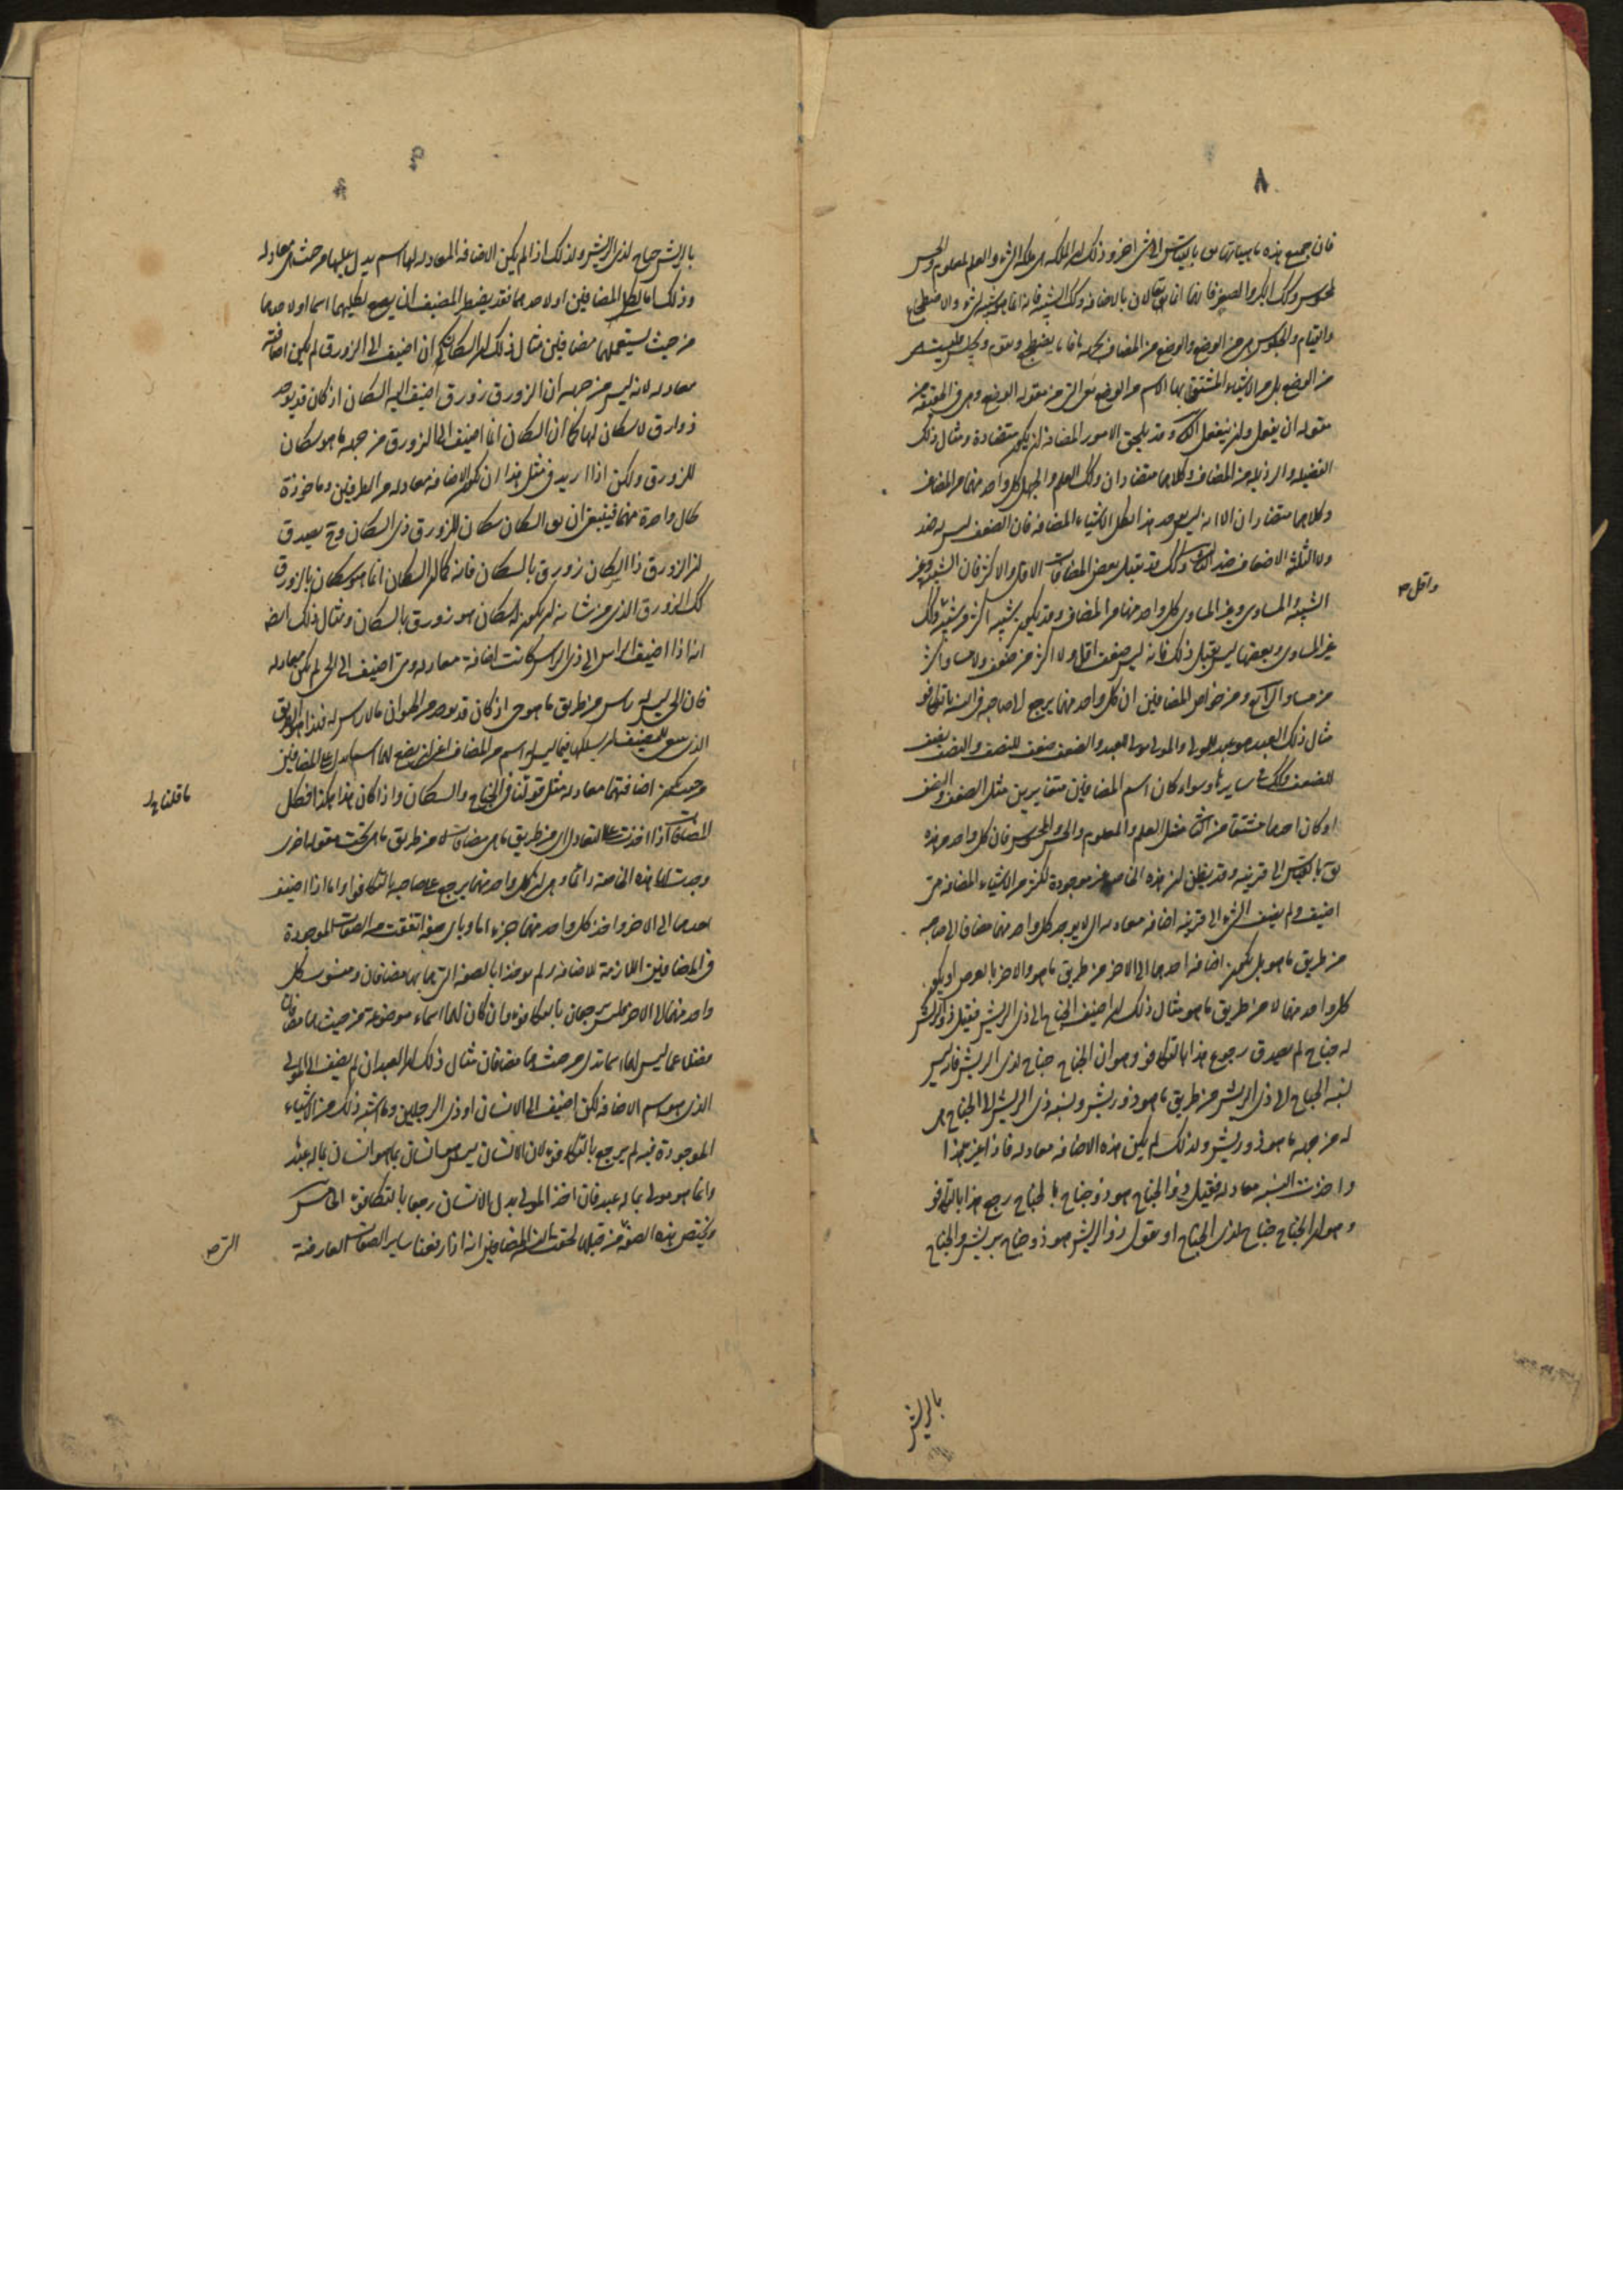 ٨
فان جميع هذه ماهياتها تق بالقياس الى شى اخر وذلك ان الملكه هى ملكه لشى والعلم لمعلوم والحس
لمحسوس وكك الكبير والصغير فانهما انما يقالان بالاضافه وكك الشبيه فانه انما هو شبيه لشى والاضطجاع
والقيام والجلوس هى من الوضع والوضع من المضاف بجهه ما فاما يضطجع ويقوم ويجلس فليست هى
من الوضع بل من الاشياء المشتق بها الاسم من الوضع يعنى التى من مقوله الوضع وهى فى الحقيقه من
مقوله ان يفعل وان ينفعل وقد يلحق الامور المضافه ان يكون متضادة ومثال ذلك
الفضيله والرذيله من المضاف وكلاهما متضادان وكك العلم والجهل كل واحد منهما من المضاف
وكلاهما متضادان الا انه ليس يوجد هذا لكل الاشياء المضافه فان الضعف ليس له ضد
ولا الثلثة الاضعاف ضد وكك قد تقبل بعض المضافات الاقل والاكثر فان الشبيه وغير
الشبيه والمساوى وغير المساوى كل واحد منهما من المضاف وقد يكون شبيه اكثر من شبيه وكك
واقل صح
غير المساوى وبعضها ليس يقبل ذلك فانه ليس ضعف اقل ولا اكثر من ضعف ولا مساو اكثر
من مساو ومن خواص المضافين ان كل واحد منهما يرجع الى صاحبه فى النسبة بالتكافو
مثال ذلك العبد هو عبد للمولى والمولى مولى للعبد والضعف ضعف للنصف والنصف نصف
للضعف وكك فى سايرها وسواء كان اسم المضافين متغايرين مثل الضعف والنصف
او كان احدهما مشتقا من الثانى مثل العلم والمعلوم والحس والمحسوس فان كل واحد من هذه
يق بالقياس الى قرينه وقد يظن ان هذه الخاصه غير موجودة لكثير من الاشياء المضافه متى
اضيف ولم يضف الشى الى قرينه اضافه معادله اى لا يوجد كل واحد منهما مضافا الى صاحبه
من طريق ما هو بل يكون اضافه احدهما الى الاخر من طريق ما هو والاخر بالعرض او يكون
كل واحد منهما لا من طريق ما هو مثال ذلك ان اضيف الجناح الى ذى الريش فقيل ذو الريش
له جناح لم يصدق رجوع هذا بالتكافو وهو ان الجناح جناح لذى الريش فانه ليس
نسبه الجناح الى ذى الريش من طريق ما هو ذو ريش ونسبه ذى الريش الى الجناح هى
له من جهه ما هو ذو ريش ولذلك لم يكن هذه الاضافه معادله فاذا غير هذا
واخذت النسبه معادله فقيل ذو الجناح هو ذو جناح بالجناح رجع هذا بالتكافو
وهو ان الجناح جناح لذى الجناح او نقول ذو الريش هو ذو جناح بريش والجناح
بالريش
٩
بالريش جناح لذى الريش ولذلك اذا لم يكن الاضافه المعادله لها اسم يدل عليها من حيث هى معادله
وذلك اما لكل المضافين او لاحدهما فقد يضطر المضيف ان يضع لكليهما اسما او لاحدهما
من حيث يستعملهما مضافين مثال ذلك ان السكان ان اضيف الى الزورق لم يكن اضافته
معادله لانه ليس من جهه ان الزورق زورق اضيف اليه السكان اذ كان قد يوجد
زوارق لا سكان لها كما ان السكان انما اضيف الى الزورق من جهه ما هو سكان
للزورق ولكن اذا اريد فى مثل هذا ان تكون الاضافه معادله من الطرفين وماخوذة
بحال واحدة منهما فينبغى ان يق السكان سكان للزورق ذى السكان وح يصدق
ان الزورق ذا السكان زورق بالسكان فانه كما ان السكان انما هو سكان بالزورق
كك الزورق الذى من شانه ان يكون له سكان هو زورق بالسكان ومثال ذلك ايضه
انه اذا اضيف الراس الى ذى الراس كانت اضافة معادله ومتى اضيف الى الحى لم تكن معادله
فان الحى ليس له راس من طريق ما هو حى اذ كان قد يوجد من الحيوان ما لا راس له فهذا هو الطريق
الذى ينبغى للمضيف ان يسلكها فيما ليس له اسم من المضاف اعنى ان يضع لهما اسم يدل على المضافين
من حيث تكون اضافتهما معادله مثل قولنا فى الجناح والسكان واذا كان هذا هكذا فكل
ما قلناه
المضافات اذا اخذت على التعادل اى من طريق ما هى مضافات لا من طريق ما هى تحت مقوله اخرى
وجدت لها هذه الخاصة دائما وهى ان كل واحد منهما يرجع على صاحبه بالتكافو واما اذا اضيف
احدهما الى الاخر واخذ كل واحد منهما جزء اما وباى صفة اتفقت من الصفات الموجودة
فى المضافين اللازمة للاضافه ولم يوخذا بالصفه التى هما بها مضافان ومنسوب كل
واحد منهما الى الاخر فليس يرجعان بالتكافوء وان كان لهما اسماء موضوعة من حيث هما مضافان
فضلا عما ليس لهما اسما تدل من حيث هما مضافان مثال ذلك ان العبد ان لم يضف الى المولى
الذى هو اسم الاضافه لكن اضيف الى الانسان او ذى الرجلين وما اشبه ذلك من الاشياء
الموجودة فيه لم يرجع بالتكافوء لان الانسان ليس هو انسان بما هو انسان بما له عبد
وانما هو مولى بما له عبد فان اخذ المولى بدل الانسان رجعا بالتكافوء
ويختص بهذه الصفه من قبلها لحقت المضافين انه اذا رفعنا ساير الصفات العارضة
التى صح